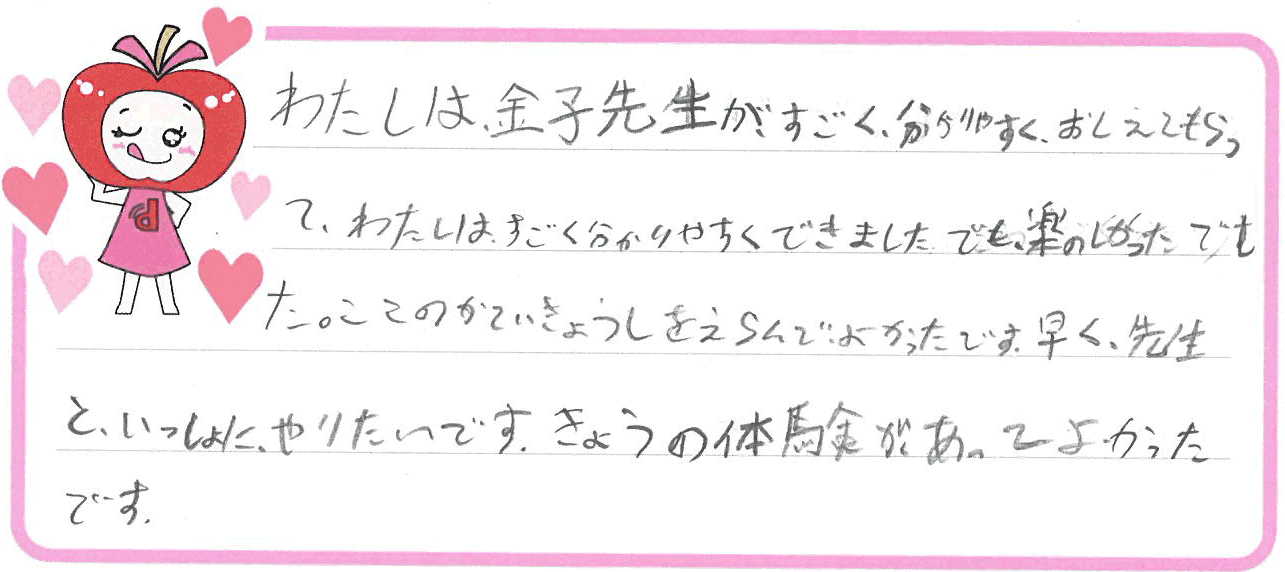 わたしは、金子先生が、すごく、分かりやすく、おしえてもらっ
て、わたしは、すごく分かりやすくできました でも、楽のしかった でも
た。ここのかていきょうしをえらんで、よかったです。早く、先生
と、いっしょに、やりたいです。きょうの体験があってよかった
です。
d